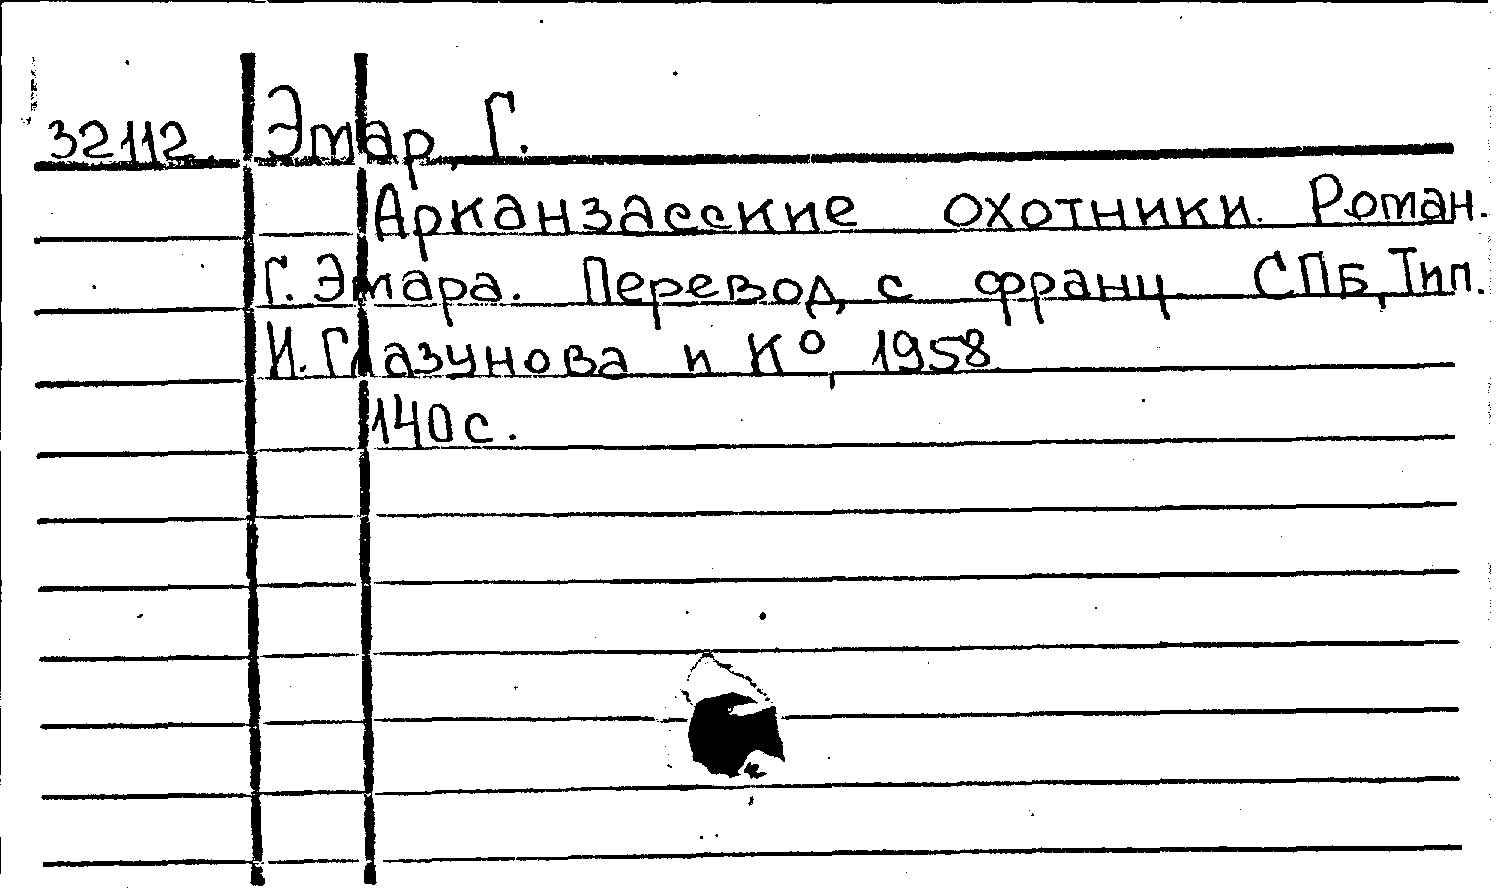 32112 Эмар, Г.
Арканзасские охотники. Роман.
Г. Эмара. Перевод с франц СПБ, Тип.
И. Глазунова и К°, 1958
140 с.